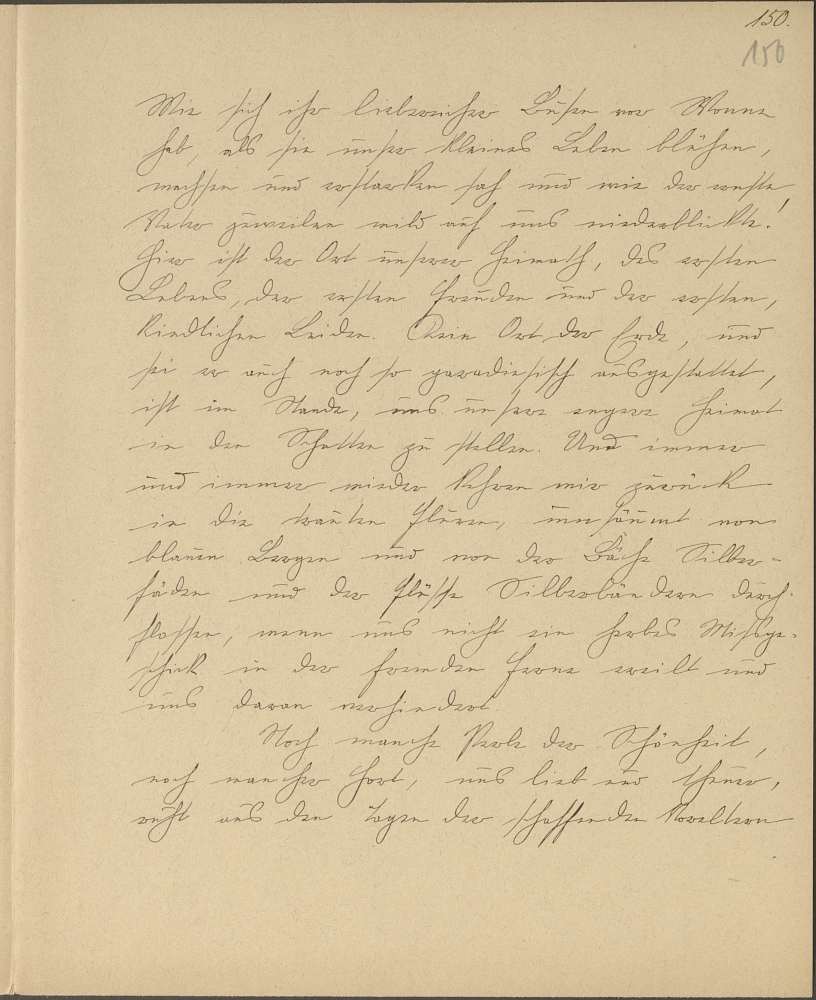 150.
150
Wie sich ihr liebreicher Busen vor Wonne
hob, als sie unser kleines Leben blühen,
wachsen und erstarken sah und wie der ernste
Vater zuweilen mild auf uns niederblickte!
Hier ist der Ort unserer Heimath, des ersten
Lebens, der ersten Freuden und der ersten,
kindlichen Leiden. Kein Ort der Erde, und
sei er auch noch so paradiesisch ausgestattet,
ist im Stande, uns unsere engere Heimat
in den Schatten zu stellen. Und immer
und immer wieder kehren wir zurück
in die trauten Fluren, umsäumt von
blauen Bergen und von der Bäche Silber-
fäden und der Flüsse Silberbändern durch-
flossen, wenn uns nicht ein herbes Missge-
schick in der fremden Ferne ereilt und
uns daran verhindert.
Noch manche Perle der Schönheit,
noch mancher Hort, uns lieb und theuer,
ruht aus den Tagen der schaffenden Voreltern